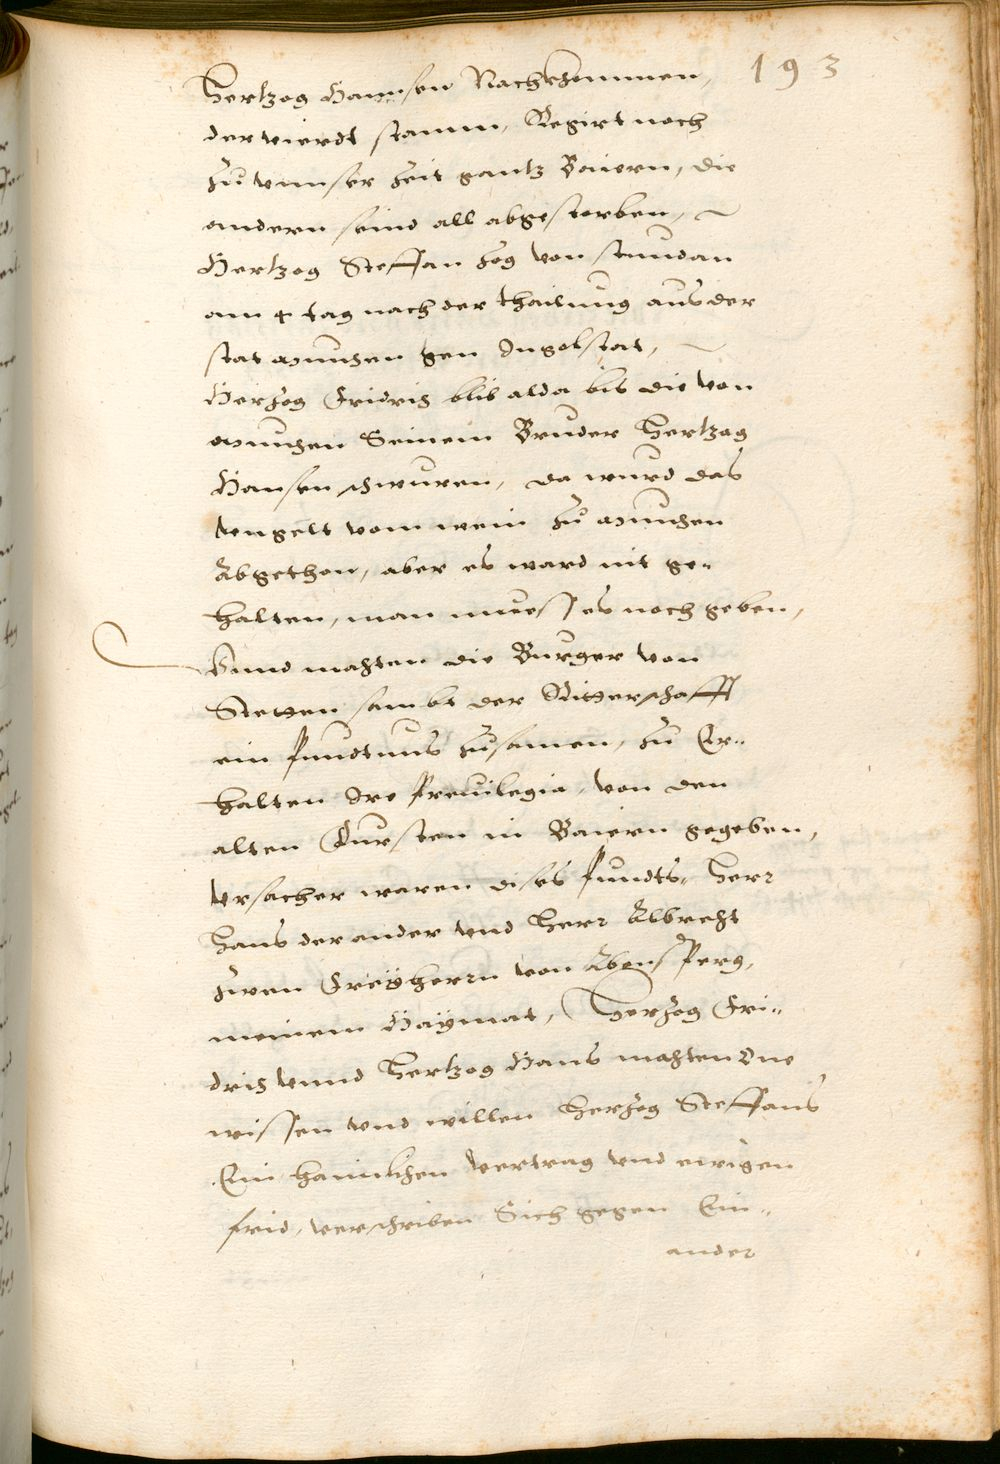 193
Hertzog Hannsen Nachkhommen,
der vierdt stamm, Regirt noch
zu vnnser zeit gantz Baiern, die
andern seind all abgestorben,
Hertzog Steffan zog von stundan
am 4 tag nach der thailung aus der
stat munchen gen Ingolstat,
Herzog Fridrich blib alda bis die von
munchen Seinem Bruder Hertzog
Hansen schwuren, da wurd das
vngelt vom wein zu munchen
Abgethon, aber es ward nit ge-
halten, man muess es noch geben,
Vnnd machten die Burger von
Stetten sambt der Ritterschafft
ein pundtnus zusamen, zu Er-
halten Ire Preuilegia, von den
alten Fursten in Baiern gegeben,
vrsacher waren dises pundts, Herr
Hans der ander vnd Herr Albrecht
zwen Freÿherrn von Abensperg,
meinem Haÿmat, Herzog Fri-
drich vnnd Hertzog Hans machten One
wissen vnd willen Herzog Steffans
Ein haimlichen vertrag vnd ewigen
frid, verschriben Sich gegen Ein-
ander